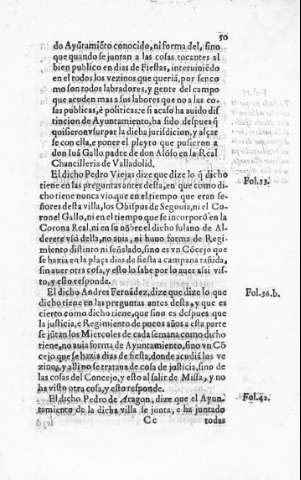 50
do Ayũtamiẽto conocido, ni forma del, sino
que quando se juntan a las cosas tocantes al
bien publico en dias de Fiestas, interuiniẽdo
en el todos los vezinos que queriã, por ser co
mo son todos labradores, y gente del campo
que acuden mas a sus labores que no a las co
sas publicas, ẽ politicas: e si acaso ha auido dis
tincion de Ayuntamiento, ha sido despues q̃
quisieron vsurpar la dicha jurisdicion, y alçar
se con ella, e poner el pleyto que pusieron a
don Iuã Gallo padre de don Alõso en la Real
Chancilleria de Valladolid.
El dicho Pedro Viejas dize que dize lo q̃ dicho
tiene en las preguntas antes desta, en que como di-
cho tiene nunca vio que en el tiempo que eran se-
ñores desta villa, los Obispos de Segouia, ni el Co-
ronel Gallo, ni en el tiempo que se incorporò en la
Corona Real, ni en su nõbre el dicho fulano de Al-
derete vsò della, no auia, ni huuo forma de Regi-
miento distinto ni señalado, sino es vn Cõcejo que
se hazia en la plaça dias de fiesta a campana tañida,
sin auer otra cosa, y esto lo sabe por lo auer assi vis-
to, y esto responde.
Fol.13.
El dicho Andres Fernãdez, dize que dize lo que
dicho tiene en las preguntas antes desta, y que es
cierto como dicho tiene, que sino es despues que
la justicia, e Regimiento de pocos años a esta parte
se jũtan los Miercoles de cada semana como dicho
tiene, no auia forma de Ayuntamiento, sino vn Cõ
cejo que se hazia dias de fiesta, donde acudiã los ve
zinos, y alli no se trataua de cosa de justicia, sino de
las cosas del Concejo, y esto al salir de Missa, y no
ha visto otra cosa, y esto responde.
Fol.36.b.
El dicho Pedro de Aragon, dize que el Ayun-
tamiento de la dicha villa se junta, e ha juntado
Fol.42.
Cc
todas